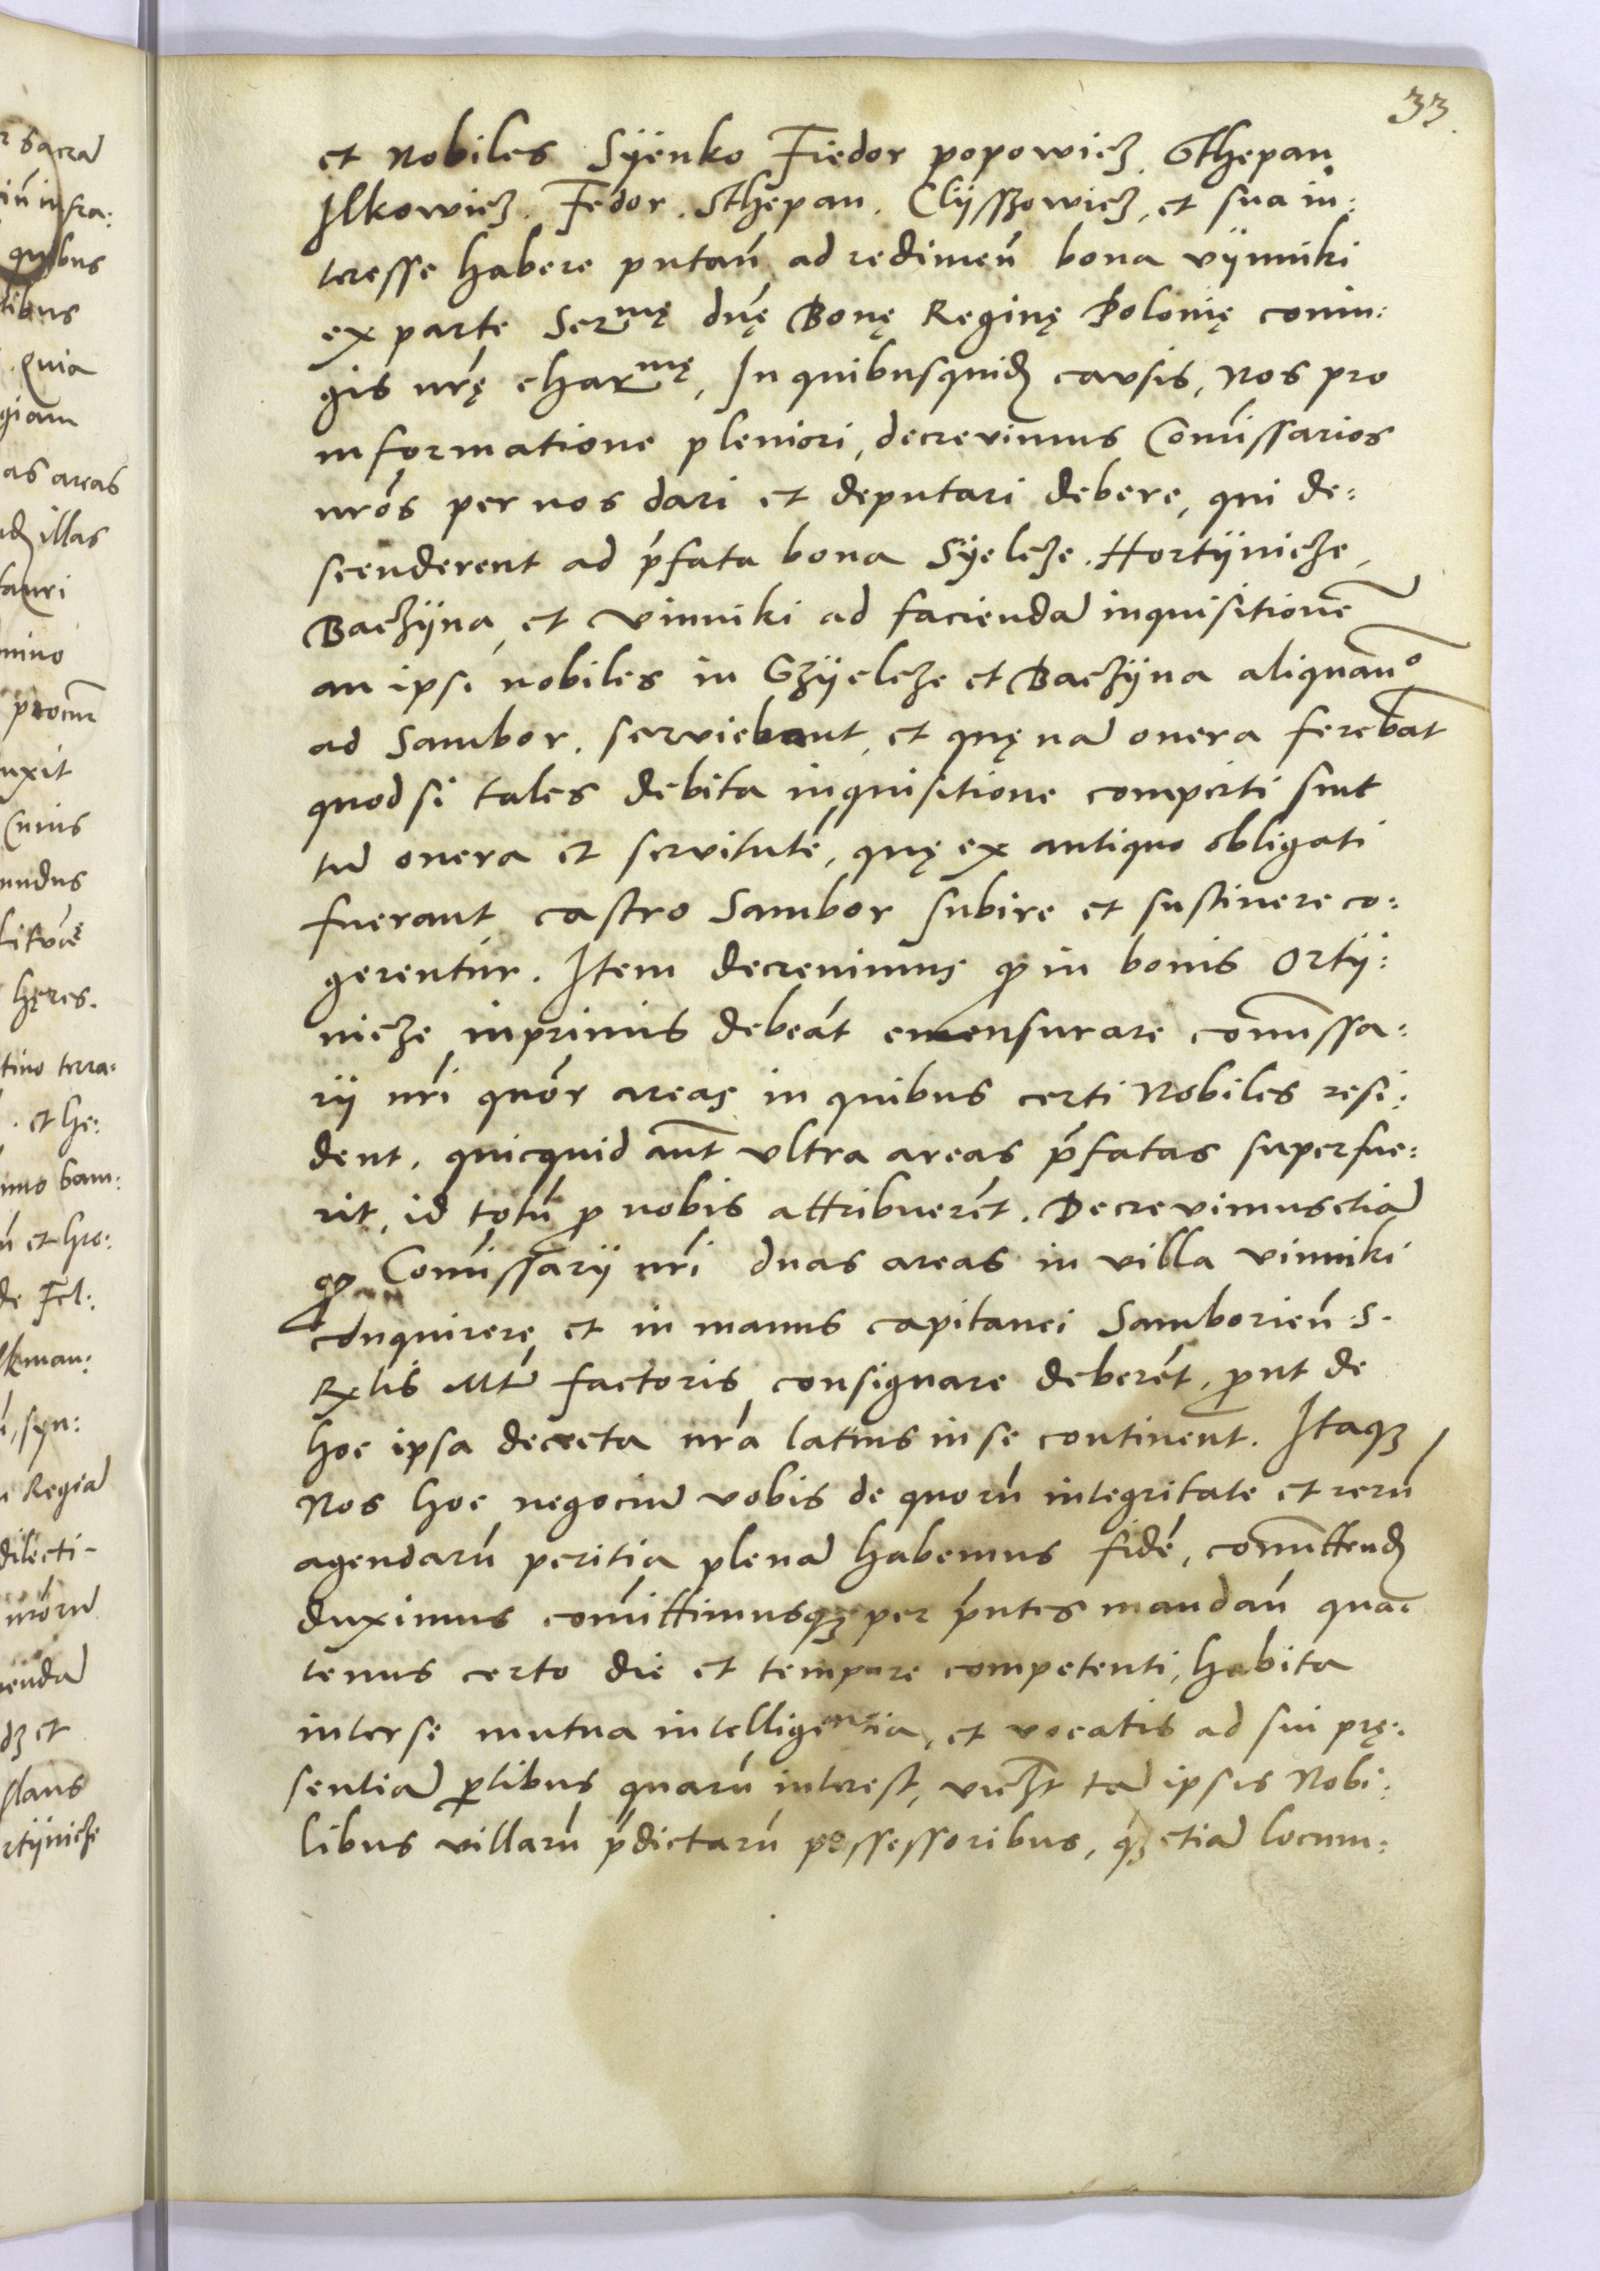 33.
et Nobiles Syenko Fiedor popowicz. Sthepan
Ilkowicz. Fedor. Sthepan. Clyssowicz, et sua in:
teresse habere putan̄ ad redimen̄ bona vynniki
ex parte Sermę dn̄ę Bonę Reginę Polonię coniu:
gis nr̄ę charmę, In quibusquid̄ causis, Nos pro
informatione pleniori, decrevimus Com̄issarios
nrōs per nos dari et deputari debere, qui de:
scenderent ad p̄fata bona Syelcze. Hortynicze,
Baczyna, et Vinniki ad faciendā inquisitionē
an ipsi nobiles in Szyelcze et Baczyna aliquan̄o
ad Sambor. serviebant, et quęnā onera ferebāt
quod si tales debita inquisitione comperti sint
tū onera et servitutē, quę ex antiquo obligati
fuerant castro Sambor subire et sustinere co:
gerentur. Item decrevimus ꝙ in bonis Orty:
nicze inprimis debeāt emensurare com̄issa:
rij nr̄i quōr areas in quibus certi Nobiles resi:
dent. quicquid aūt ultra areas p̄fatas superfue:
rit, id totū ꝓ nobis attribuerēt. Decrevimus etiā
ꝙ Com̄issarij nr̄i duas areas in villa vinniki
conquirere et in manus capitanei Samborien̄ .S.
Rx̄lis Mt̄ū factoris consignare deberēt, prout de
hoc ipsa decreta nr̄a latius in se continent. Itaqꝫ
Nos hoc negociū vobis de quorū integritate et rerū
agendarū peritia plenā habemus fidē, com̄ittend̄
duximus com̄ittimusqꝫ per p̄ntes mandan̄ qua:
tenus certo die et tempore competenti, habita
inter se mutua intelligentia, et vocatis ad sui prę:
sentiā ꝑtibus quarū interest, viczt tā ipsis Nobi:
libus villarū p̄dictarū possessoribus, qꝫ etiā locum: